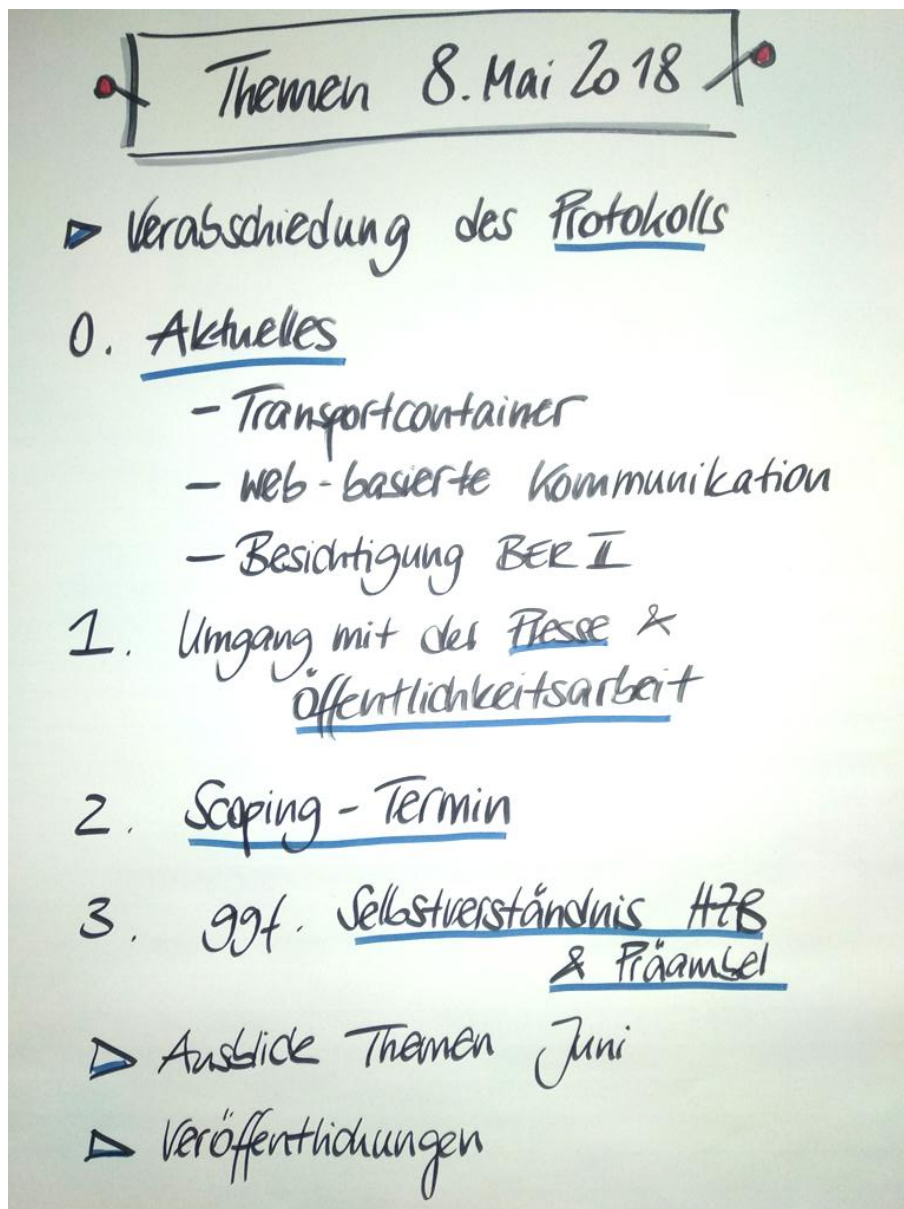 Themen 8. Mai 2018
Verabschiedung des Protokolls
0. Aktuelles
- Transportcontainer
- web-basierte Kommunikation
- Besichtigung BER II
1. Umgang mit der Presse &
Öffentlichkeitsarbeit
2. Scoping-Termin
3. ggf. Selbstverständnis HZB
& Präambel
Ausblick Themen Juni
Veröffentlichungen